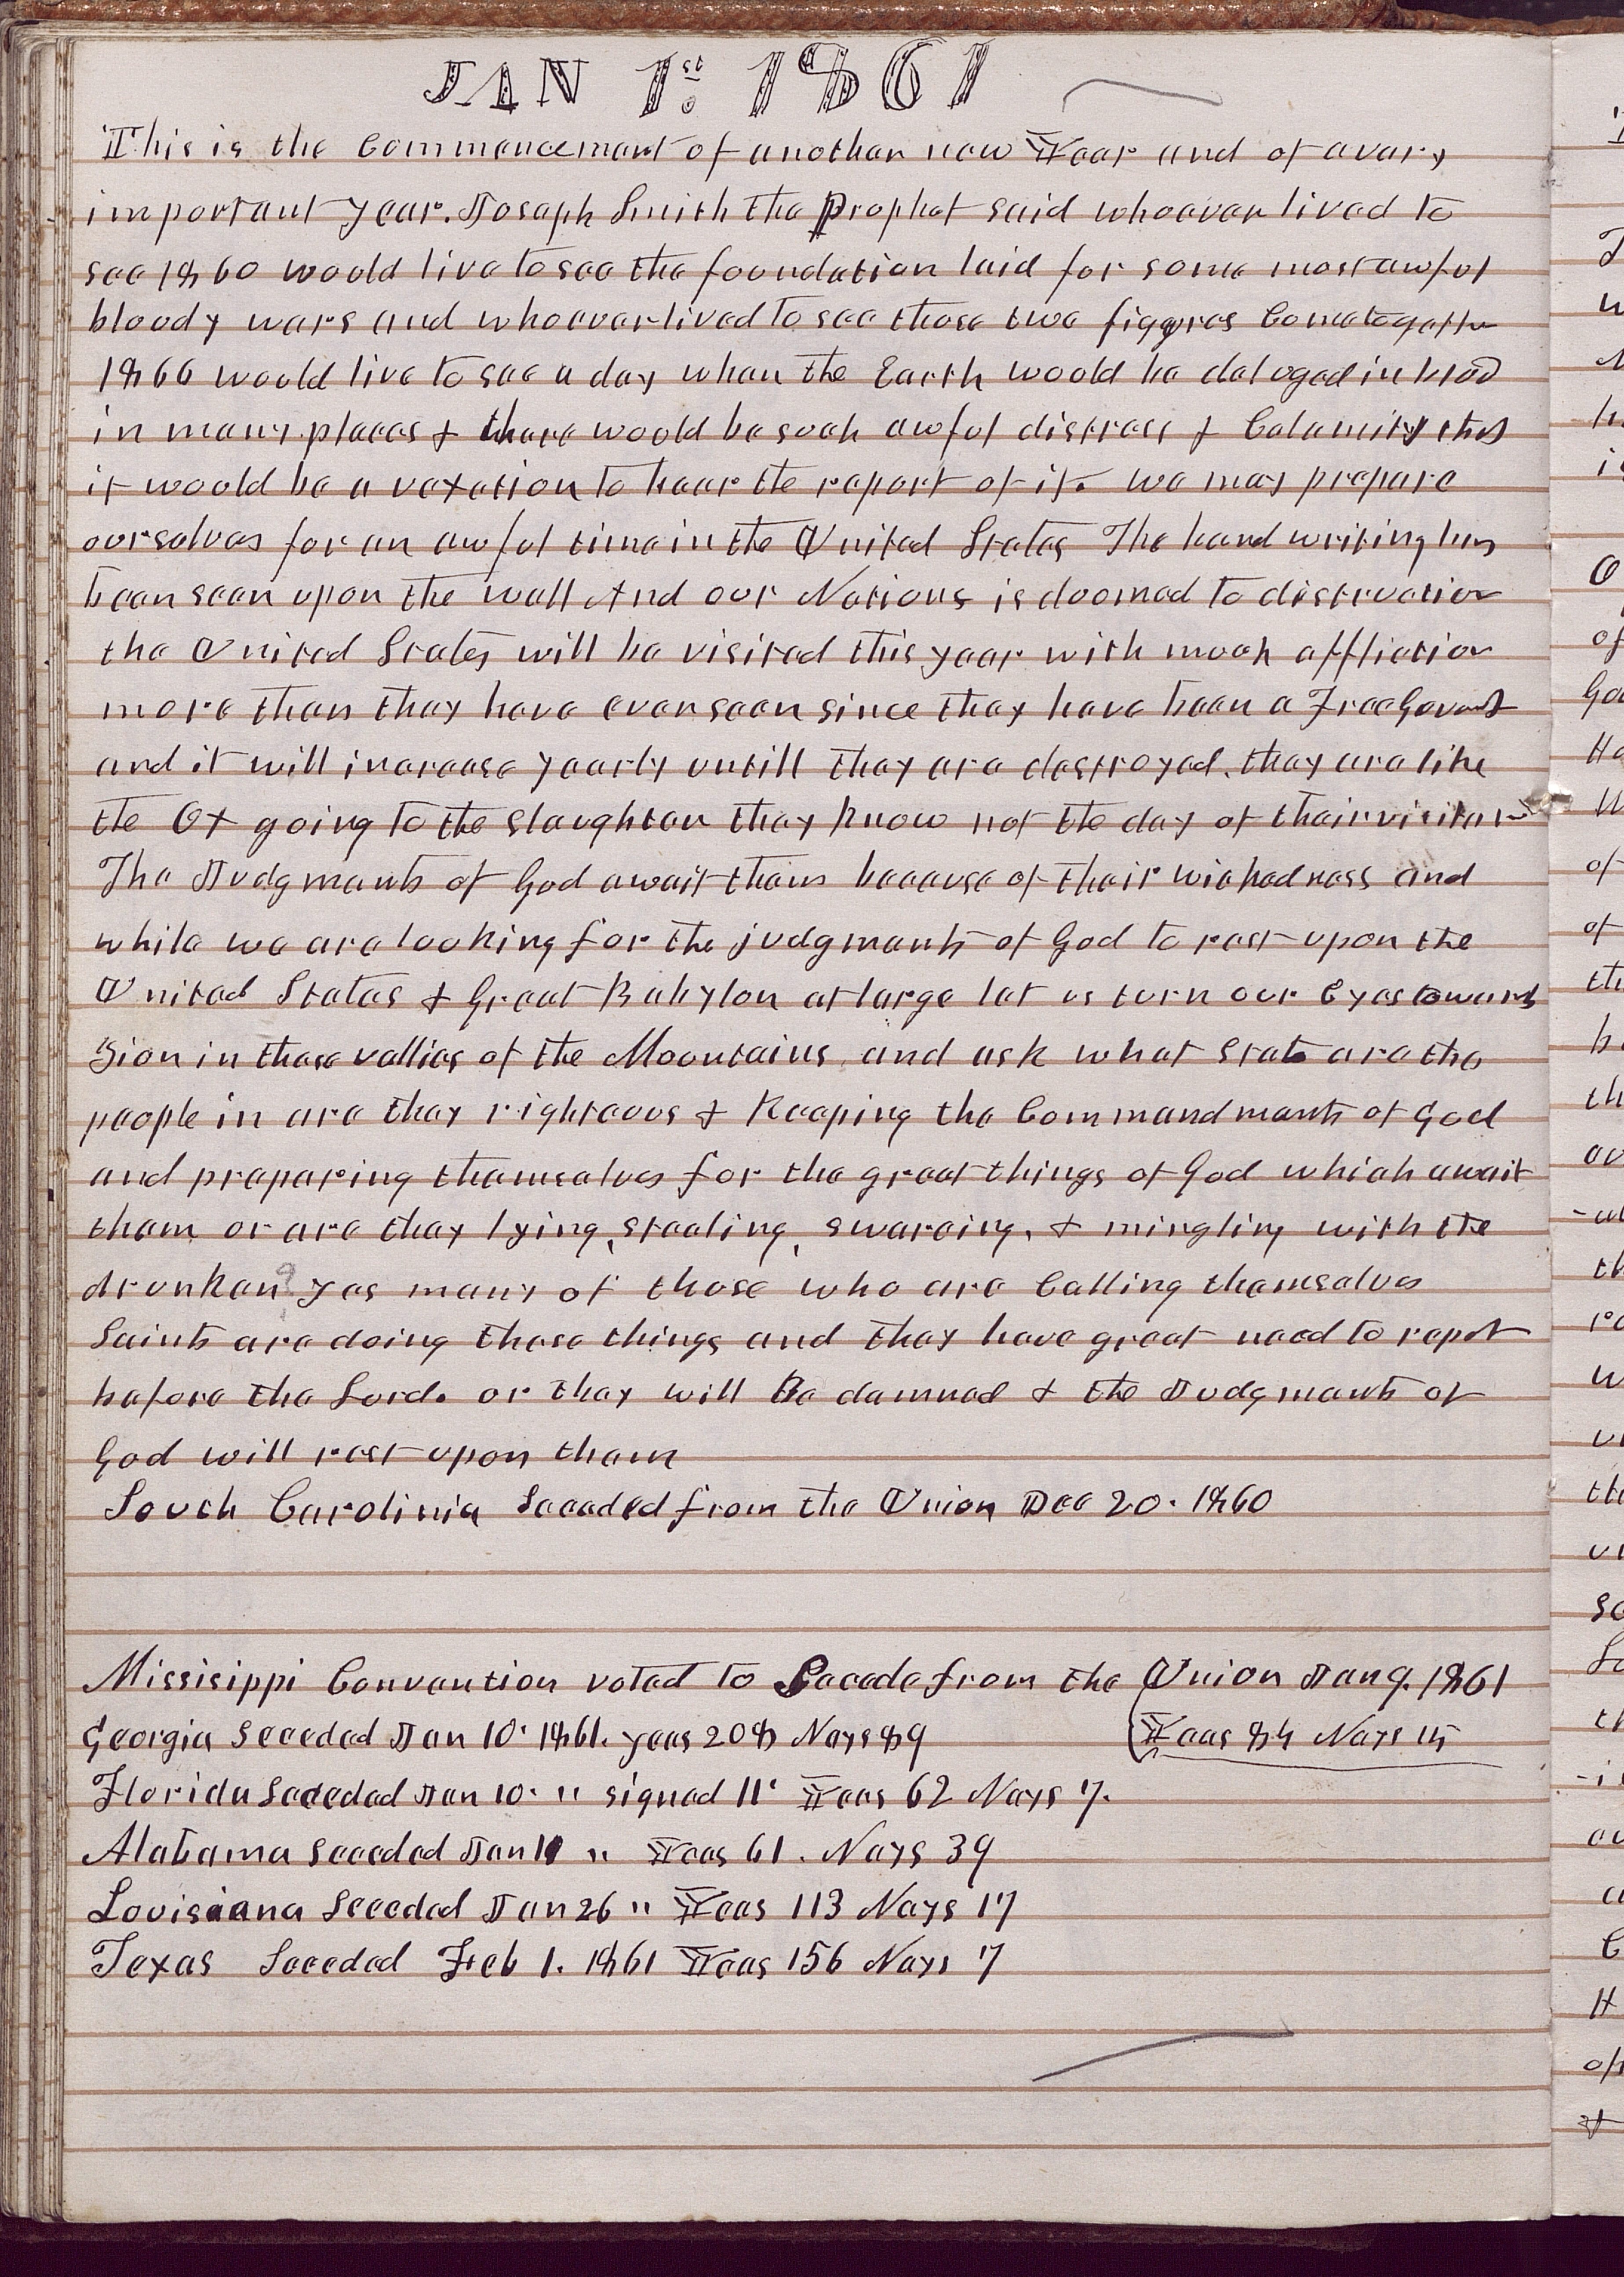 JAN 1st 1861
This is the Commencement of another new Year and of a very
important year. Joseph Smith the Prophet said whoever lived to
see 1860 would live to see the foundation laid for some most awful
bloody wars and whoever lived to see those two figgures Come together
1866 would live to see a day when the Earth would be deluged in blod
in many places & thare would be such awful distress & Calamity that
it would be a vexation to hear the report of it. we may prepare
ourselves for an awful time in the United States The hand writing has
been seen upon the wall And our Nations is doomed to distruction
the United States will be visited this year with much affliction
more than they have ever seen since they have been a Free Govmt
and it will increase yearly untill they are destroyed. they are like
the Ox going to the slaughter they know not the day of their
The Judgments of God await them because of their wickedness and
while we are looking for the judgments of God to rest upon the
United States & Great Babylon at large let us turn our Eyes towards
Zion in these vallies of the Mountains and ask what state are the
people in are they righteous & Keeping the Commandments of God
and preparing themselves for the great things of God which await
them or are they lying, stealing, swareing, & mingling with the
drunken? yes many of those who are Calling themselves
Saints are doing these things and they have great need to repent
before the Lord. or they will Be damned & the Judgments of
God will rest upon them
South Carolinia Seceded from the Union Dec 20. 1860
Missisippi Convention voted to Secede from the Union Jan 9. 1861
Yeas 84 Nays 15
Georgia Seceded Jan 10. 1861. yeas 208 Nays 89
Florida Seceded Jan 10. " signed 11. Yeas 62 Nays 7.
Alabama Seceded Jan 11 " Yeas 61. Nays 39
Louisiana Seceded Jan 26 " Yeas 113 Nays 17
Texas Seceded Feb 1. 1861 Yeas 156 Nays 7